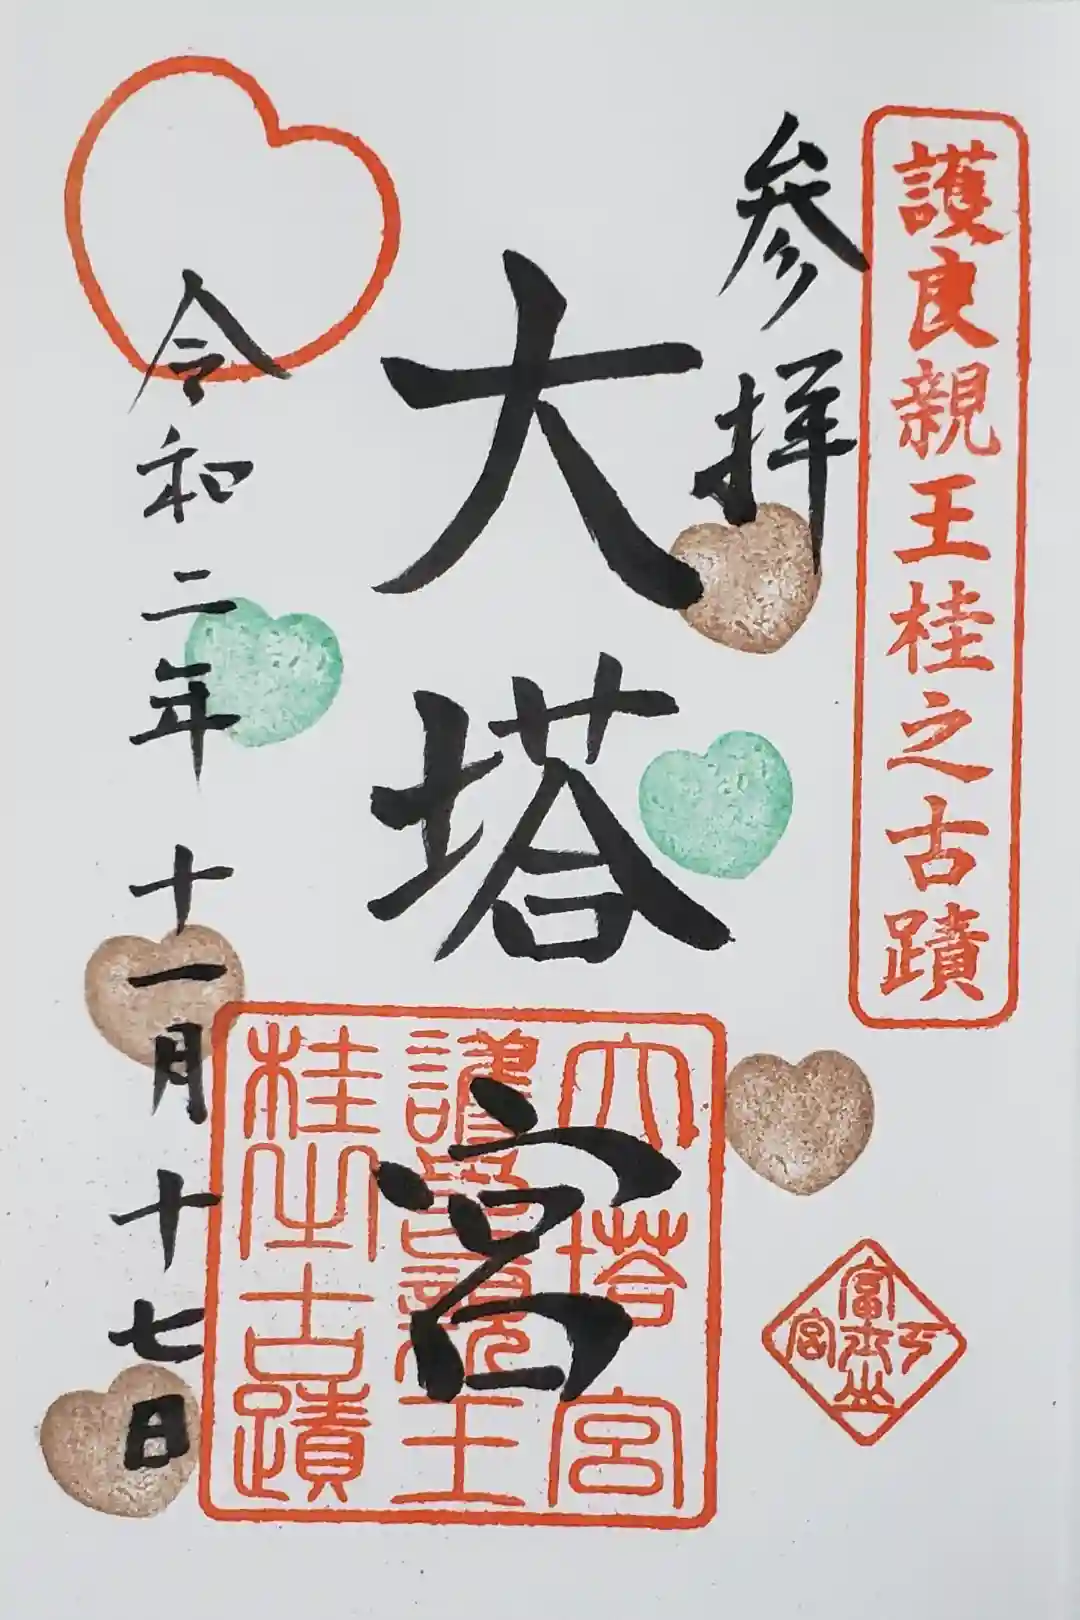 護良親王桂之古蹟
参拝
大塔宮
令和二年 十一月十七日
大塔宮
護良親王
桂之古蹟